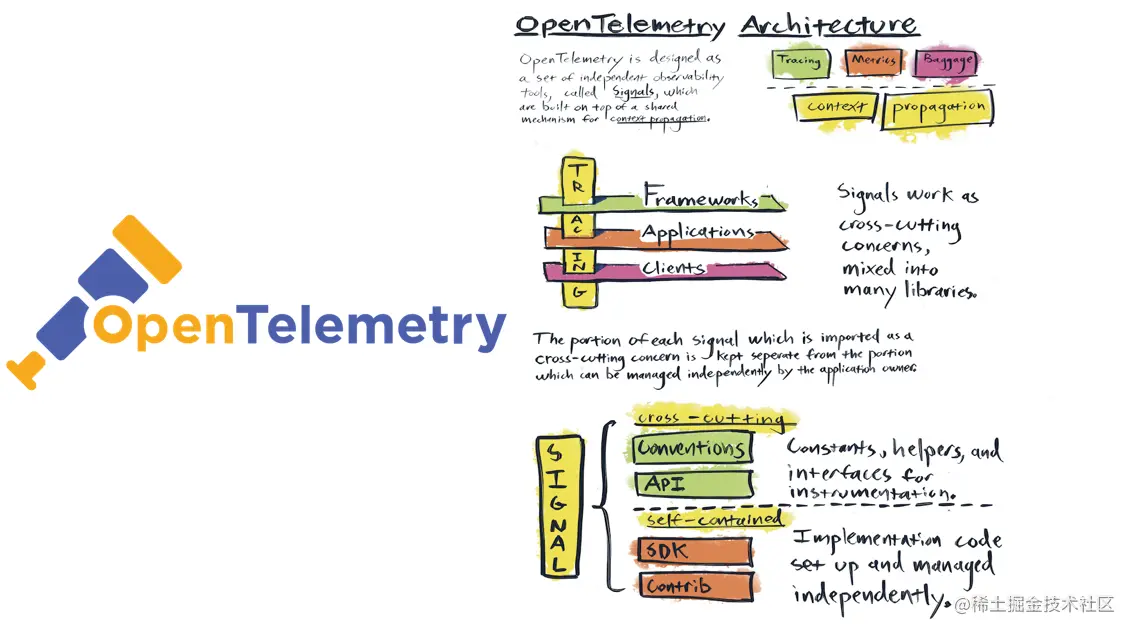 OpenTelemetry
OpenTelemetry Architecture
OpenTelemetry is designed as
a set of independent observability
tools, called Signals, which
are built on top of a shared
mechanism for context propagation.
Tracing
Metrics
Baggage
context
propagation
TRACING
Frameworks
Applications
Clients
Signals work as
cross-cutting
concerns,
mixed into
many libraries.
The portion of each signal which is imported as a
cross-cutting concern is kept seperate from the portion
which can be managed independently by the application owner.
SIGNAL
cross-cutting
Conventions
API
Constants, helpers, and
interfaces for
instrumentation.
self-contained
SDK
Contrib
Implementation code
set up and managed
independently.
@稀土掘金技术社区